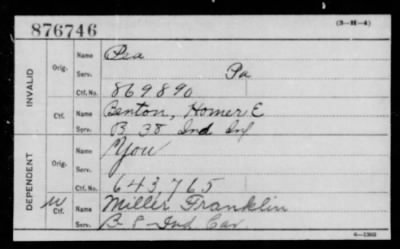 876746
(3-H-4)
INVALID
Orig.
Name Pea
Serv. Pa
Ctf. No. 869890
Ctf.
Name Benton, Homer E
Serv. B 38 Ind Inf
DEPENDENT
Orig.
Name You
Serv.
Ctf. No. 643,765
W
Ctf.
Name Miller Franklin
Serv. B 8 Ind Cav